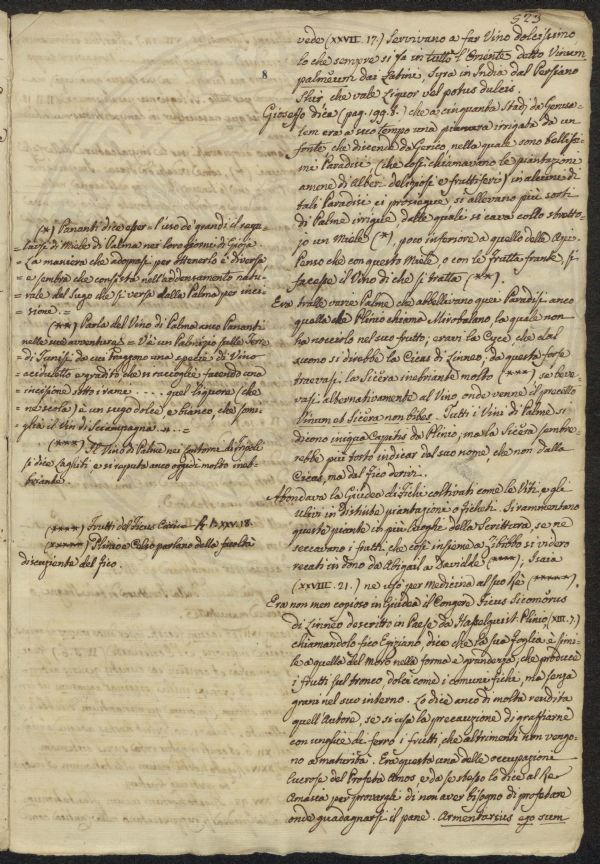 523
vede (XXVII. 17.) Servivano a far Vino dolcissimo
lo che sempre si fa in tutto l'Oriente detto Vinum
palmeum dai Latini, Syra in India dal Persiano
Shir che vale Liquor vel potus dulcis.
8
Gioseffo dice (pag. 199.) che a cinquanta stadj da Gerusa-
lem era a suo tempo una pianura irrigata da un
fonte che discende da Gerico, nella quale sono bellissi-
mi Paradisi (che così chiamavano le piantazioni
amene di Alberi deliziosi e fruttiferi) in alcuni di
tali Paradisi ei prosiegue, si allevano più sorti
di Palme irrigue dalle quale si cava collo stretto-
jo un Miele (*), poco inferiore a quello delle Api.
Penso che con questo Miele, o con le frutta frante, si
facesse il Vino di che si tratta (**).
Era tralle varie Palme che abbellavano quei Paradisi anco
quella che Plinio chiama Mirobalano, la quale non
ha nocciolo nel suo frutto; eravi la Cyce, che dal
suono si direbbe la Cicas di Linneo; da questa forse
traevasi la Sicera inebriante molto (***) se beve-
vasi alternativamente al Vino, onde venne il precetto
Vinum et Sicera non bibes. Tutti i Vini di Palme si
dicono iniqua Capitis da Plinio; ma la Sicera sembre-
rebbe più tosto indicar dal suo nome, che non dalla
Cicas, ma dal fico derivi.
Abondava la Giudea di Fichi coltivati come le Viti, e gli
Ulivi in distinte piantazione o ficheti. Si rammentano
queste piante in più luoghi della Scrittura, se ne
seccavano i frutti, che così insieme a Zibibbo si videro
recati in dono da Abigail a Davidde (****), Isaia
(XXVIII. 21.) ne usò per medicina al suo Re (*****).
Era non men copioso in Giudea il Congere Ficus Sicomorus
di Linneo descritto in Paese da Hasselquist. Plinio (XIII. 7.)
chiamandolo fico Egiziano, dice che la sua foglia è simi-
le a quella del Moro nella forma e grandezza, che produce
i frutti sul tronco dolci come i comuni fichi, ma senza
grani nel suo interno. Lo dice anco di molta rendita
quell'Autore, se si usa la precauzione di graffiarne
con unghie di ferro i frutti, che altrimenti non vengo-
no a maturità. Era questa una delle occupazioni
lucrose del Profeta Amos e da se stesso lo dice al Re
Amasia per provargli di non aver bisogno di profetare
onde guadagnarsi il pane. Armentarius ego sum
(*) Pananti dice esser l'uso de' grandi il rega-
larsi di Miele di Palma nei loro giorni di Gioja.
La maniera che adoprasi per ottenerlo è diversa
= e sembra che consista nell'addensamento natu-
rale del Sugo che si versa dalla Palma per inci-
sione. =
(**) Parla del Vino di Palma anco Pananti
nelle sue avventure = V'è un Palmizio nelle Terre
di Tunisi da cui traggono una spezie di Vino
acidusetto e gradito che si raccoglie facendo una
= incisione sotto i rami ..... quel liquore (che
ne scola) è un sugo dolce, e bianco, che somi-
glia il Vin di Sciampagna. =
(***) Il Vino di Palme nei contorni di Tripoli
si dice Laghibi e si reputa anco oggidì molto ineb-
briante.
(****) Frutti del Ficus Carica R. I. XXV. 18.
(*****) Plinio e Celso parlano della facoltà
discuziente del fico.